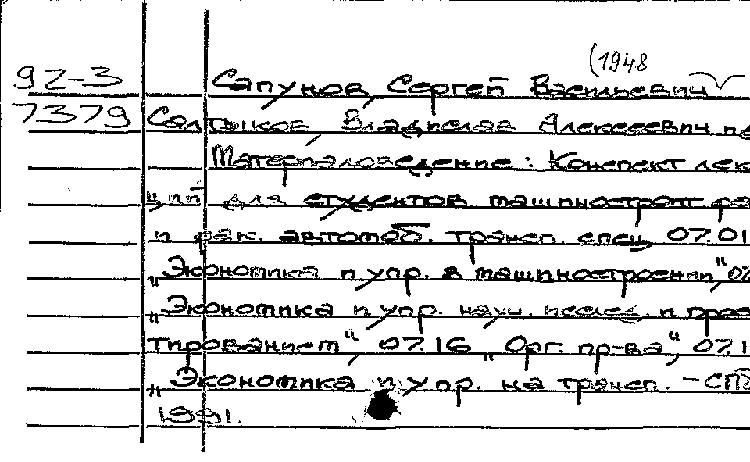 (1948
92-3 Сапунов, Сергей Васильевич
7379 Салтыков, Владислав Алексеевич
Материаловедение: Конспект лек
для студентов машиностроит. фа
и фак. автомоб. трансп. спец. 07.01
„Экономика и упр. в машиностроении“,
„Экономика и упр. науч. исслед. и прое
тированием“, 07.16 „Орг. пр-ва“, 07.1
„Экономика и упр. на трансп. - СПб
1991.